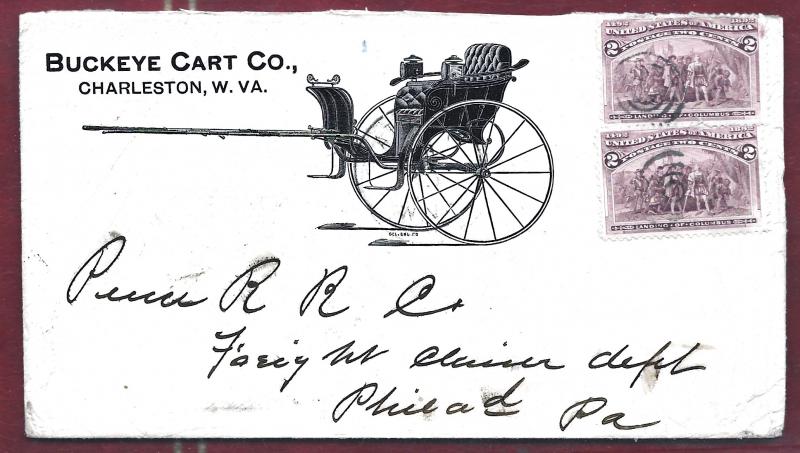 BUCKEYE CART CO.,
CHARLESTON, W. VA.
1492 1892
UNITED STATES OF AMERICA
POSTAGE TWO CENTS
2 2
LANDING OF COLUMBUS
1492 1892
UNITED STATES OF AMERICA
POSTAGE TWO CENTS
2 2
LANDING OF COLUMBUS
Penn R R Co.
Freight Claim dept
Philad Pa